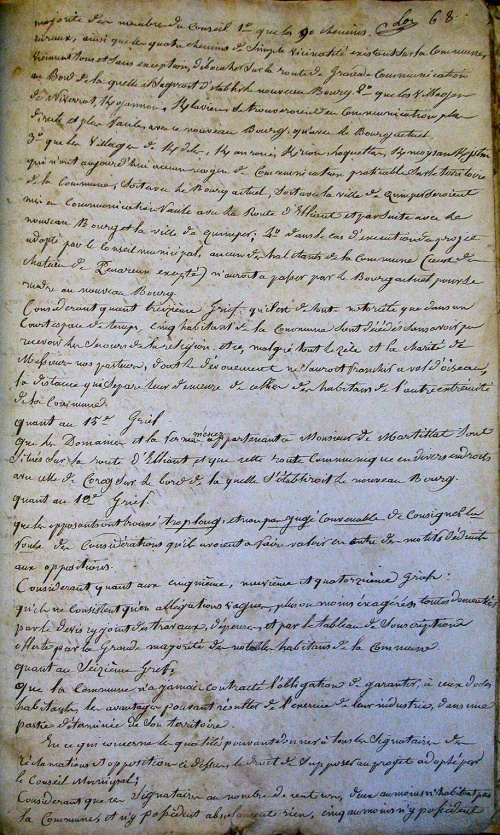 majorité des membres du Conseil 1° que les 90 chemins Lov 68.
ruraux, ainsi que les quatre chemins de simple vicinalité existant sur la Commune,
viennent tous et sans exception, déboucher sur la route de Grande Communication
au Bord de laquelle il s'agiroit d'établir le nouveau Bourg. 2° que les villages
de se trouveroient en Communication plus
directe et plus facile avec ce nouveau Bourg, qu'avec le Bourg actuel.
3° que les villages de
qui n'ont aujourd'hui aucun moyen de Communication praticable sur le territoire
de la Commune, soit avec le Bourg actuel, soit avec la ville de quimper seroient
mis en Communication facile avec la Route d'Elliant et par suite avec le
nouveau Bourg et la ville de quimper. 4° dans le cas d'exécution du projet
adopté par le Conseil municipal, aucun des habitants de la Commune (Ceux du
château de excepté) n'auroit à passer par le Bourg actuel pour se
rendre au nouveau Bourg.
Considerant quant treizième Grief: qu'il est de toute notoriété que dans un
Court espace de temps, cinq habitant de la Commune sont décédés sans avoir pu
recevoir les secours de la réligion et ce, malgré tout le zèle et la charité de
Messieurs nos pasteurs, dont le dévouement ne sauroit franchir à vol d'oiseau,
la distance qui sépare leur demeure de celles des habitans de l'autre extrémité
de la Commune.
quant au 15me Grief.
que les Domaines et la ferme appartenant à Monsieur de Martillat sont
situés sur la route d'Elliant et que cette route Communique en divers endroits
avec celle de Coray sur le bord de la quelle s'établiroit le nouveau Bourg.
quant au Grief.
que les opposants ont trouvé trop long, et non pas jugé convenable de Consigner la
foule des Considérations qu'ils avoient à faire valoir en outre des motifs déduits
aux oppositions.
Considerant quant aux cinquième, neuvième et quatorzième griefs:
qu'ils ne consistent qu'en allégations vagues, plus ou moins éxagérées, toutes démenties
par le devis cy joint des travaux, dépenses, et par le tableau de Souscriptions
offerte par la Grande majorité des notables habitans de la Commune
quant au Seizième Grief.
que la Commune n'a jamais contracté l'obligation de garantir, à ceux de ses
habitants, les avantages pouvant résulter de l'exercice de leur industrie, dans une
partie déterminée de son territoire.
En ce qui concerne les qualités pouvant donner à tous les Signataires des
réclamations et opposition ci dessus, le droit de s'opposer au projet adopté par
le Conseil Municipal;
Considerant que ces Signataires au nombre de cent un, deux au moins n'habitent pas
la Commune, et n'y possèdent absolument rien, cinq au moins n'y possèdent